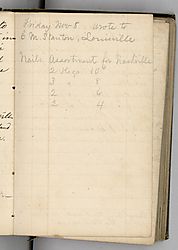 Friday Nov 8 wrote to
E M Stanton, Louisville
Nails Assortment for Nashville
2 Kegs 10
3 " 8
2 " 6
2 " 4